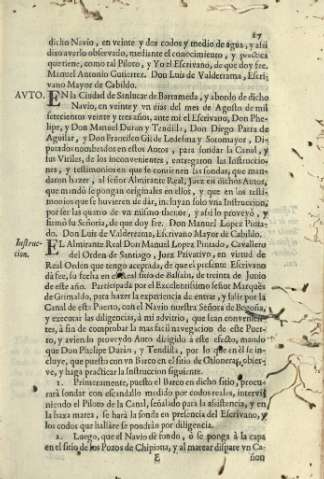 27
dicho Navio, en veinte y dos codos y medio de agua, y assi
dixo averlo observado, mediante el conocimiento, y practica
que tiene, como tal Piloto, y Yo el Escrivano, de que doy fee.
Manuel Antonio Gutierrez. Don Luis de Valderrama, Escri-
vano Mayor de Cabildo.
AVTO. EN la Ciudad de Sanlucar de Barrameda, y abordo de dicho
Navio, en veinte y un dias del mes de Agosto de mil
setecientos veinte y tres años, ante mi el Escrivano, Don Phe-
lipe, y Don Manuel Duran y Tendilla, Don Diego Parra de
Aguilar, y Don Francisco Gil de Ledesma y Sotomayor, Di-
putados nombrados en estos Autos, para sondar la Canal, y
sus Viriles, de los inconvenientes, entregaron las Instruccio-
nes, y testimonios en que se convienen las sondas, que man-
daron hazer, al señor Almirante Real, Juez en dichos Autos,
que mandò se pongan originales en ellos, y que en los testi-
monios que se huvieren de dàr, incluyan solo vna Instruccion,
por ser las quatro de vn mismo thenor, y assi lo proveyò, y
firmò su Señoria, de que doy fee. Don Manuel Lopez Pinta-
do. Don Luis de Valderrama, Escrivano Mayor de Cabildo.
Instruc-
cion.
EL Almirante Real Don Manuel Lopez Pintado, Cavallero
del Orden de Santiago, Juez Privativo, en virtud de
Real Orden que tengo aceptada, de que el presente Escrivano
dà fee, su fecha en el Real sitio de Balsain, de treinta de Junio
de este año. Participada por el Excelentissimo señor Marquès
de Grimaldo, para hazer la experiencia de entrar, y salir por la
Canal de este Puerto, con el Navio nuestra Señora de Begoña,
y executar las diligencias, à mi advitrio, que sean convenien-
tes, à fin de comprobar la mas facil navegacion de este Puer-
to, y aviendo proveydo Auto dirigido à este efecto, mando
que Don Phelipe Duràn, y Tendilla, por lo que en èl se in-
cluye, que puesto con vn Barco en el sitio de Chioneras, obser-
ve, y haga practicar la Instruccion siguiente.
1. Primeramente, puesto el Barco en dicho sitio, procu-
rarà sondar con escandallo medido por codos reales, intervi-
niendo el Piloto de la Canal, señalado para la assistencia, y en
la baxa marea, se harà la sonda en presencia del Escrivano, y
los codos que hallare se pondràn por diligencia.
2. Luego, que el Navio dè fondo, ò se ponga à la capa
en el sitio de los Pozos de Chipiona, y al marear dispare vn Ca-
E
ñon